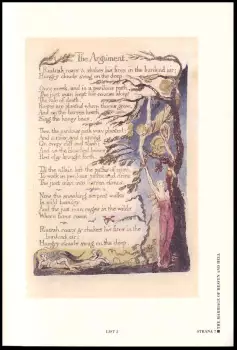 The Argument.
Rintrah roars & shakes his fires in the burdend air;
Hungry clouds swag on the deep
Once meek, and in a perilous path,
The just man kept his course along
The vale of death.
Roses are planted where thorns grow,
And on the barren heath
Sing the honey bees.
Then the perilous path was planted:
And a river, and a spring
On every cliff and tomb;
And on the bleached bones
Red clay brought forth.
Till the villain left the paths of ease,
To walk in perilous paths, and drive
The just man into barren climes.
Now the sneaking serpent walks
In mild humility.
And the just man rages in the wilds
Where lions roam.
Rintrah roars & shakes his fires in the
burdend air;
Hungry clouds swag on the deep.
LIST 2
STRANA 7
THE MARRIAGE OF HEAVEN AND HELL